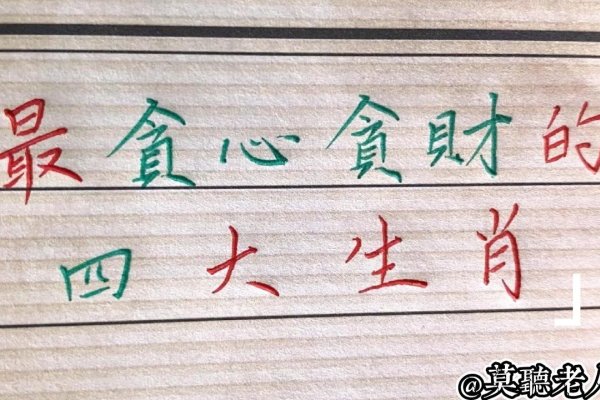 最貪心貪財的
四大生肖
@莫聽老人